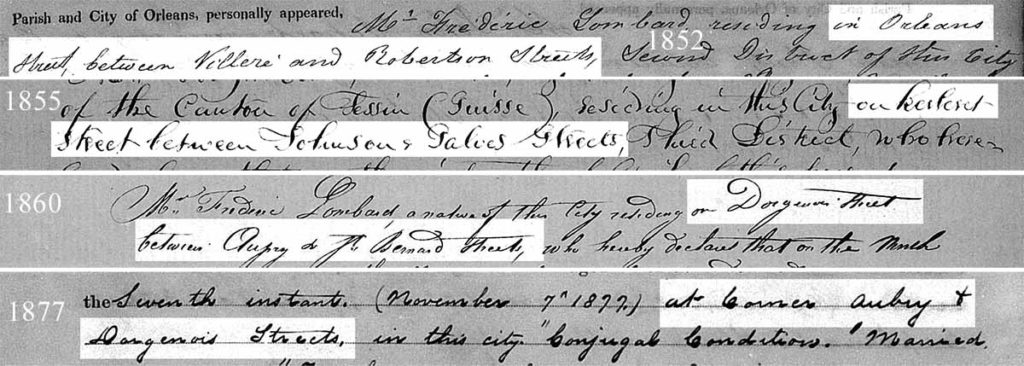 Parish and City of Orleans, personally appeared,
Mr. Frédéric Lombard residing in Orleans
1852
Street, between Villeré and Robertson Streets, Second District of this City
1855
of the Canton of Tessin (Suisse), residing in this City on Kerlerel
Street between Johnson & Galves Streets, Third District, who here-
1860
Mr. Frederic Lombard, a native of this City residing on Dorgenois Street
between Aupry & St. Bernard Streets, who hereby declares that on the
1877
the Seventh instant. (November 7th 1877,) at Corner Aubry &
Dorgenois Streets, in this city. "Conjugal Condition." Married.